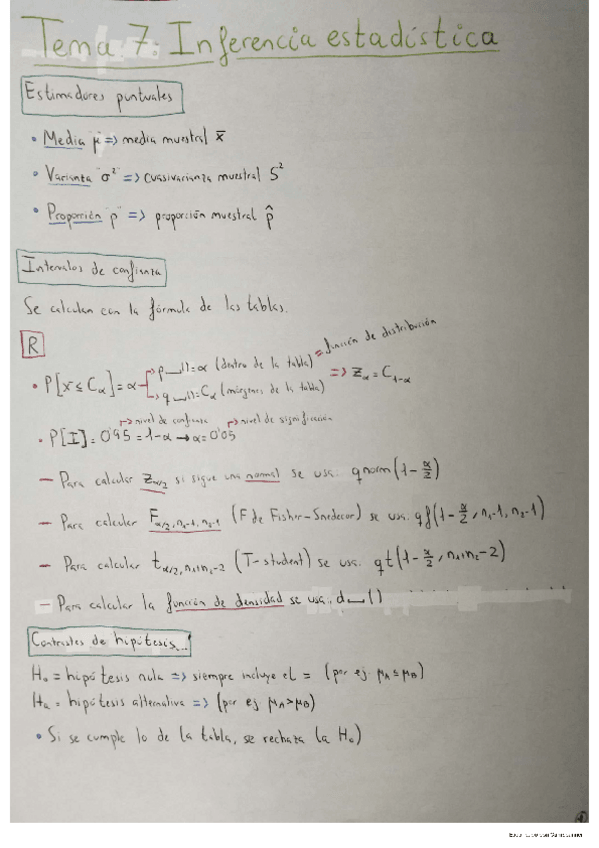 Tema 7: Inferencia estadística
Estimadores puntuales
• Media "μ" => media muestral x̅
• Varianza "σ²" => cuasivarianza muestral S²
• Proporción "p" => proporción muestral p̂
Intervalos de confianza
Se calculan con la fórmula de las tablas.
R
• P[X ≤ Cα] = α → p__() = α (dentro de la tabla) = función de distribución
→ q__() = Cα (márgenes de la tabla) => zα = C1-α
→ nivel de confianza → nivel de significación
• P[I] = 0'95 = 1-α → α = 0'05
— Para calcular zα/2 si sigue una normal se usa: qnorm(1-α/2)
— Para calcular Fα/2, n1-1, n2-1 (F de Fisher-Snedecor) se usa: qf(1-α/2, n1-1, n2-1)
— Para calcular tα/2, n1+n2-2 (T-student) se usa: qt(1-α/2, n1+n2-2)
— Para calcular la función de densidad se usa: d__()
Contrastes de hipótesis
H0 = hipótesis nula => siempre incluye el = (por ej. μA ≤ μB)
Ha = hipótesis alternativa => (por ej. μA > μB)
• Si se cumple lo de la tabla, se rechaza la H0)